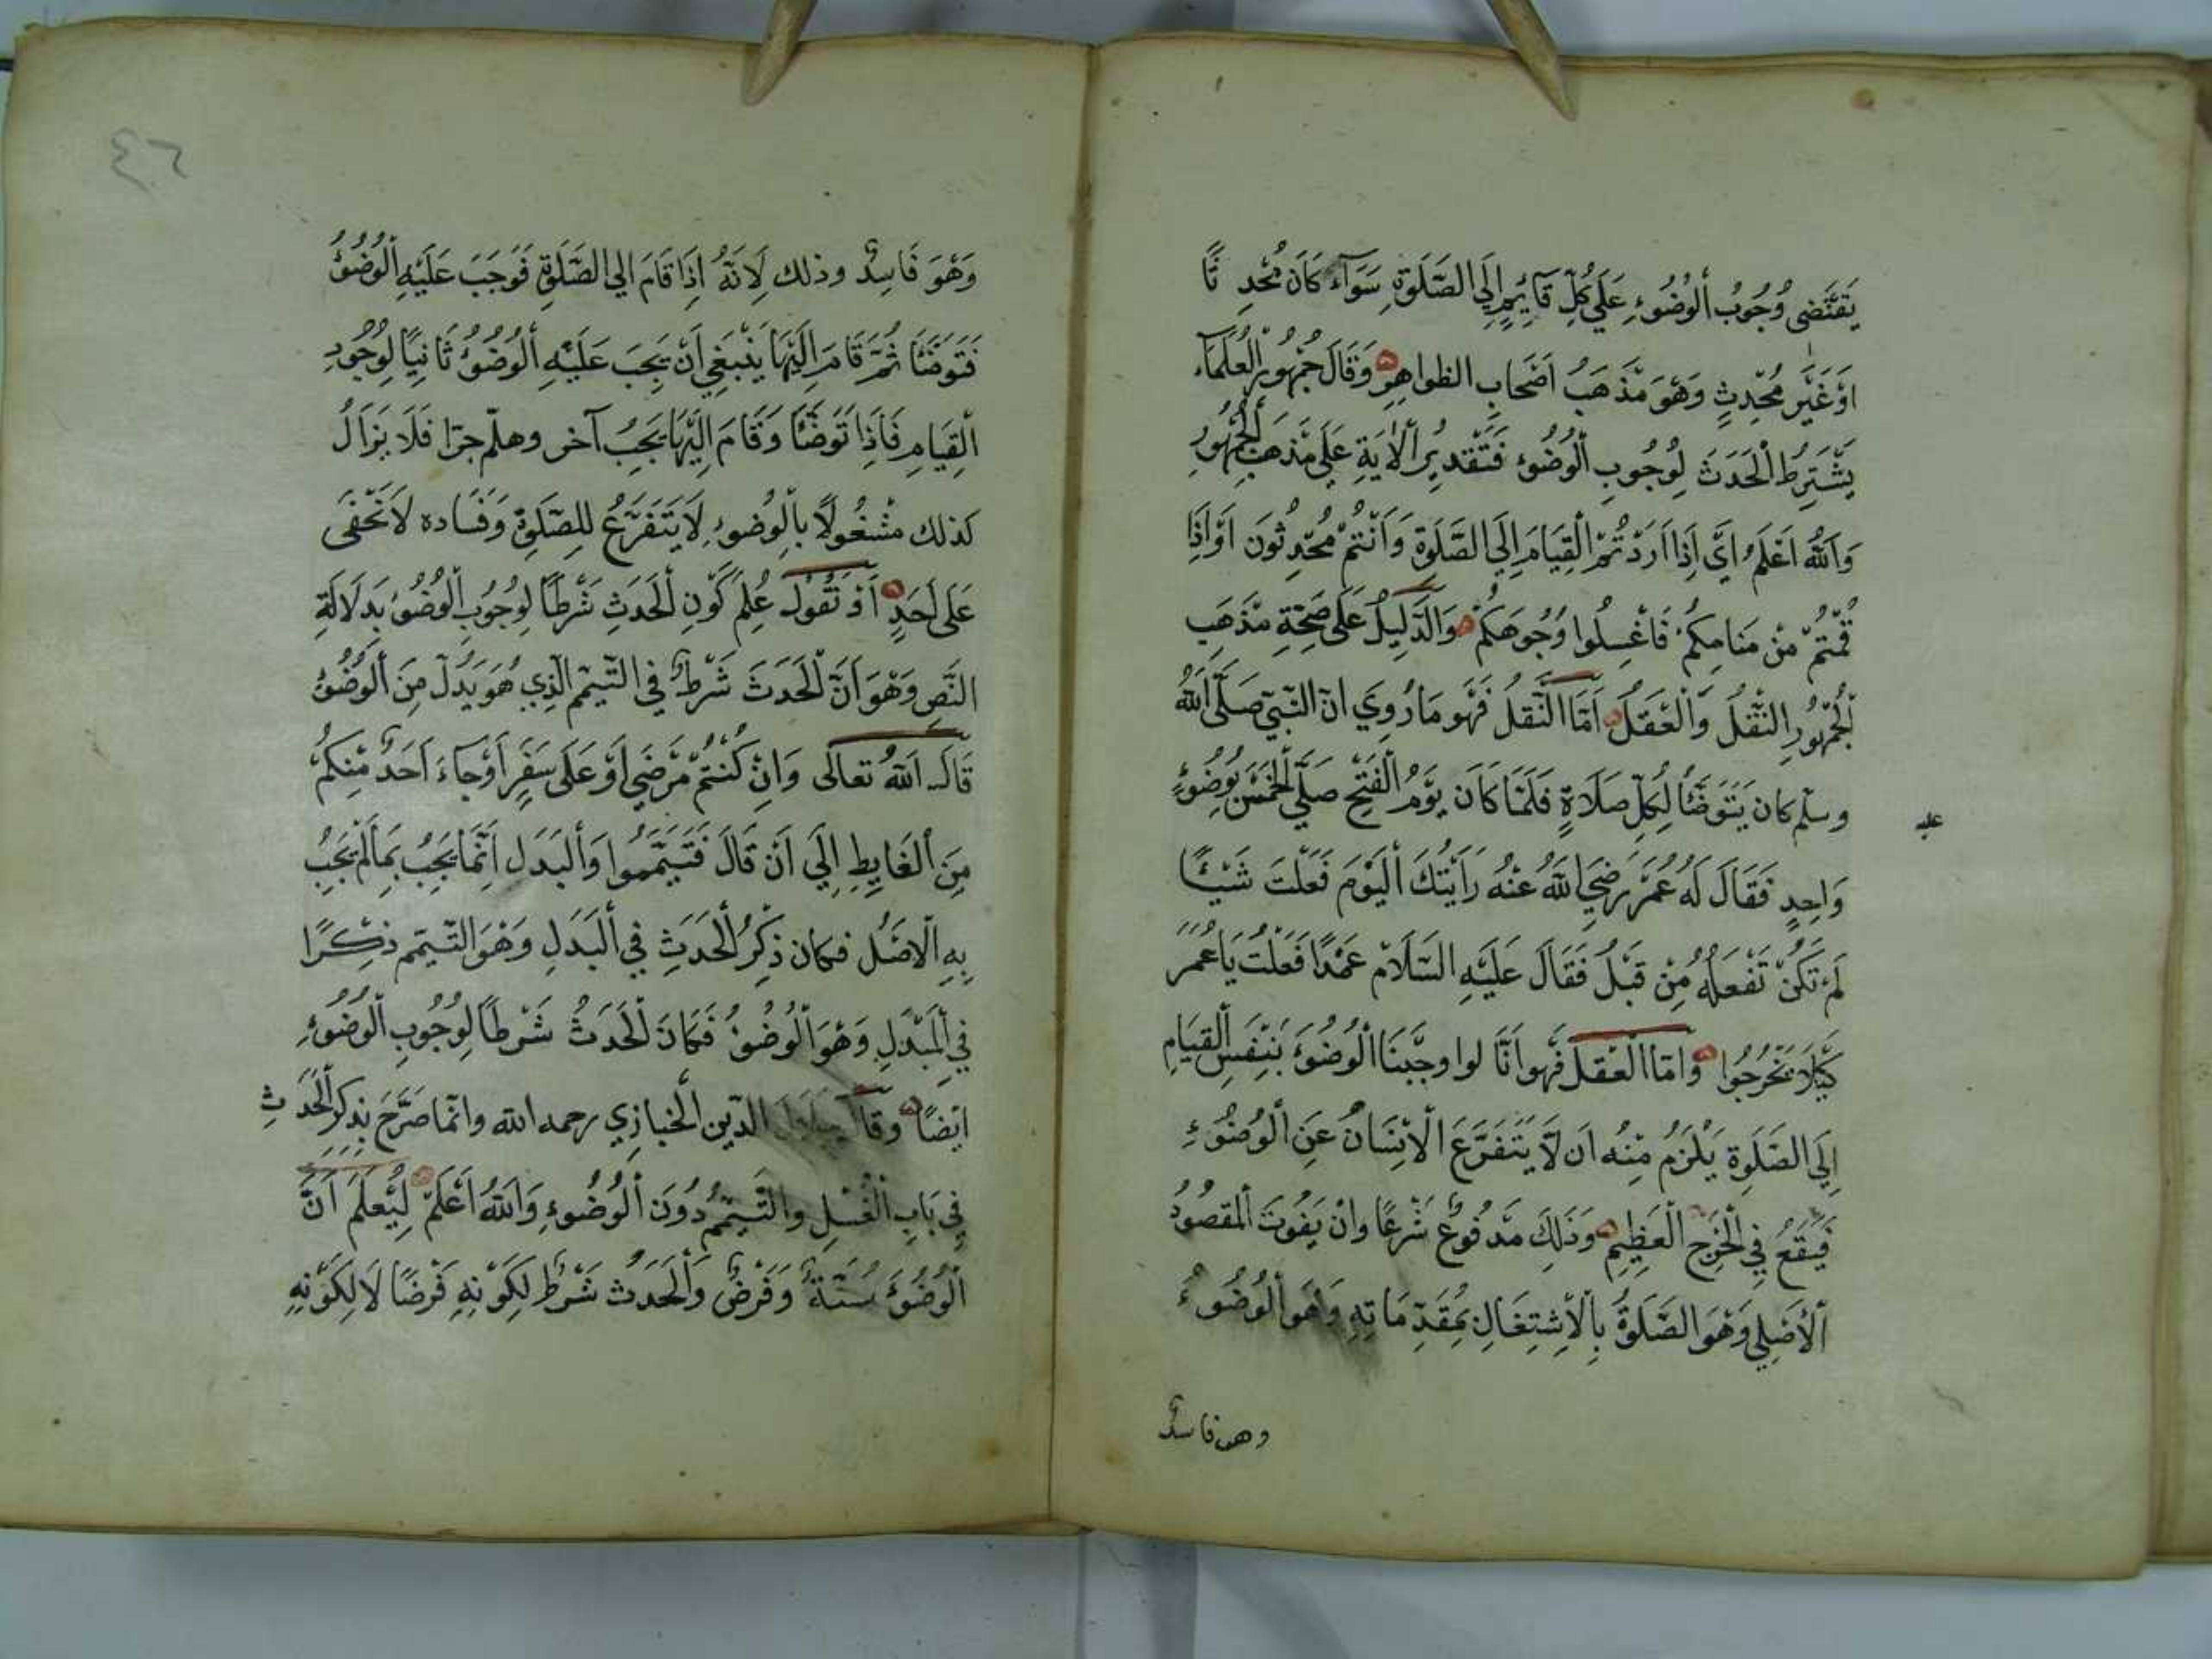 يَقْتَضِى وُجُوبُ اَلْوُضُوءِ عَلَي كُلِّ قَآئِمٍ اِلَي الصَّلَوةِ سَوَآءً كَانَ مُحْدِ ثًا
اَوْ غَيْرَ مُحْدِثٍ وَهُوَ مَذْهَبُ اَصْحَابِ الظواهِرِ وَقَالَ جُمْهُورُ الْعُلَمَآءِ
يَشْتَرِطُ الْحَدَثَ لِوُجُوبِ الْوُضُوءِ فَتَقْدِيرُ الْاٰيَةِ عَلَي مَذْهَبِ الْجُمْهُورِ
وَاَللّٰهُ اَعْلَمُ اَيْ اِذَا اَرَدْتُمْ الْقِيَامَ اِلَي الصَّلَوةِ وَاَنْتُمْ مُحْدِثُونَ اَوْاِذَا
قُمْتُمْ مِنْ مَنَامِكُمْ فَاغْسِلُوا وُجُوهَكُمْ وَالدَّلِيلُ عَلَي صِحَّةِ مَذْهَبِ
الْجُمْهُورِ النَّقْلُ وَالْعَقْلُ اَمَّا النَّقْلُ فَهُوَ مَا رُوِيَ انّ النَّبِيّ صَلَّى اَللّٰهُ
عليه
وسلم كان يَتَوَضَّأُ لِكُلِّ صَلَاةٍ فَلَمَّا كَانَ يَوْمُ الْفَتْحِ صَلَّي الْخَمْسَ بِوُضُوءٍ
وَاحِدٍ فَقَالَ لَهُ عُمَرُ رَضِيَ اللّٰهُ عَنْهُ رَاَيْتُكَ الْيَوْمَ فَعَلْتَ شَيْـًٔا
لَمْ تَكُنْ تَفْعَلُهُ مِنْ قَبْلُ فَقَالَ عَلَيْهِ السَّلَامْ عَمْدًا فَعَلْتُ يَا عُمَرَ
كَيْلَا تَخْرُجُوا وَامّا الْعَقلُ فَهُوَ اَنَّا لوا وجَّبْنَا الْوُضُوءَ بِنَفْسِ الْقِيَامِ
اِلَي الصَّلَوةِ يَلْزَمُ مِنْهُ اَن لَّا يَتَفَرَّعَ الْاِنْسَانُ عَنِ الْوُضُوءِ
فَيَقَعُ فِي الْحَرَجِ الْعَظِيمِ وَذَلِكَ مَدْفُوعٌ شَرْعًا وانْ يَفُوتَ المقصُودُ
الْاَصْلِي وَهُوَ الصَّلَوةُ بِالْاِشْتِغَالِ بِمُقَدِّمَاتِهِ وَهُوَ الْوُضُوءُ
وهو فاسدٌ
٤٦
وَهُوَ فَاسِدٌ وذلك لِاَنَّهُ اِذَا قَامَ الي الصَّلَوةِ فَوَجَبَ عَلَيْهِ الْوُضُوءُ
فَتَوَضَّأَ ثُمَّ قَامَ اِلَيْهَا يَنْبَغِي اَنْ يَجِبَ عَلَيْهِ الْوُضُوءُ ثَانِيًا لِوُجُودِ
الْقِيَامِ فَاِذَا تَوَضَّأَ وَقَامَ اِلَيْهَا يَجِبُ آخر وهلّم جرّا فَلَا يَزَالُ
كذلك مَشْغُولًا بِالْوُضُوءِ لَا يَتَفَرَّعُ لِلصَّلَوةِ وَفَسَاده لَا تَخْفَى
عَلَى اَحَدٍ اَوْ نَقُولُ عُلِمَ كَوْنِ الْحَدَثِ شَرْطًا لِوُجُوبِ الْوُضُوءِ بِدَلَالَةِ
النَّصِ وَهُوَ اَنَّ الْحَدَثَ شَرْطٌ فِي التَّيَمّمِ الَّذِي هُوَ بَدَلٌ مِنَ الْوُضُوءِ
قَالَ اللّٰهُ تعالَى وَاِنْ كُنْتُمْ مَرْضَي اَوْ عَلَى سَفَرٍ اَوْ جَاءَ اَحَدٌ مِنْكُمْ
مِنَ الْغَايِطِ اِلَي اَنْ قَالَ فَتَيَمَّمُوا وَالْبَدَل اِنَّمَا يَجِبُ بِمَا لَمْ يَجِبُ
بِهِ الْاَصْلُ فكان ذِكْرُ الْحَدَثِ فِي الْبَدَلِ وَهُوَ التَّيَمّم ذِكْرًا
فِي الْمُبْدَلِ وَهُوَ الْوُضُوءُ فَكَانَ الْحَدَثُ شَرْطًا لِوُجُوبِ الْوُضُوءِ
اَيْضًا وَقَالَ جلَال الدّين الْخبازي رحمه الله وانّما صَرَّحَ بِذِكْرِ الْحَدَثِ
فِي بَابِ الْغُسْلِ وَالتَّيَمّمِ دُونَ الْوُضُوءِ وَاللّٰهُ اَعْلَمُ لِيُعْلَمَ اَنَّ
الْوُضُوءَ سُنَّةٌ وَفَرْضٌ وَالْحَدَثُ شَرْطٌ لِكَوْنِهِ فَرْضًا لَا لِكَوْنِهِ